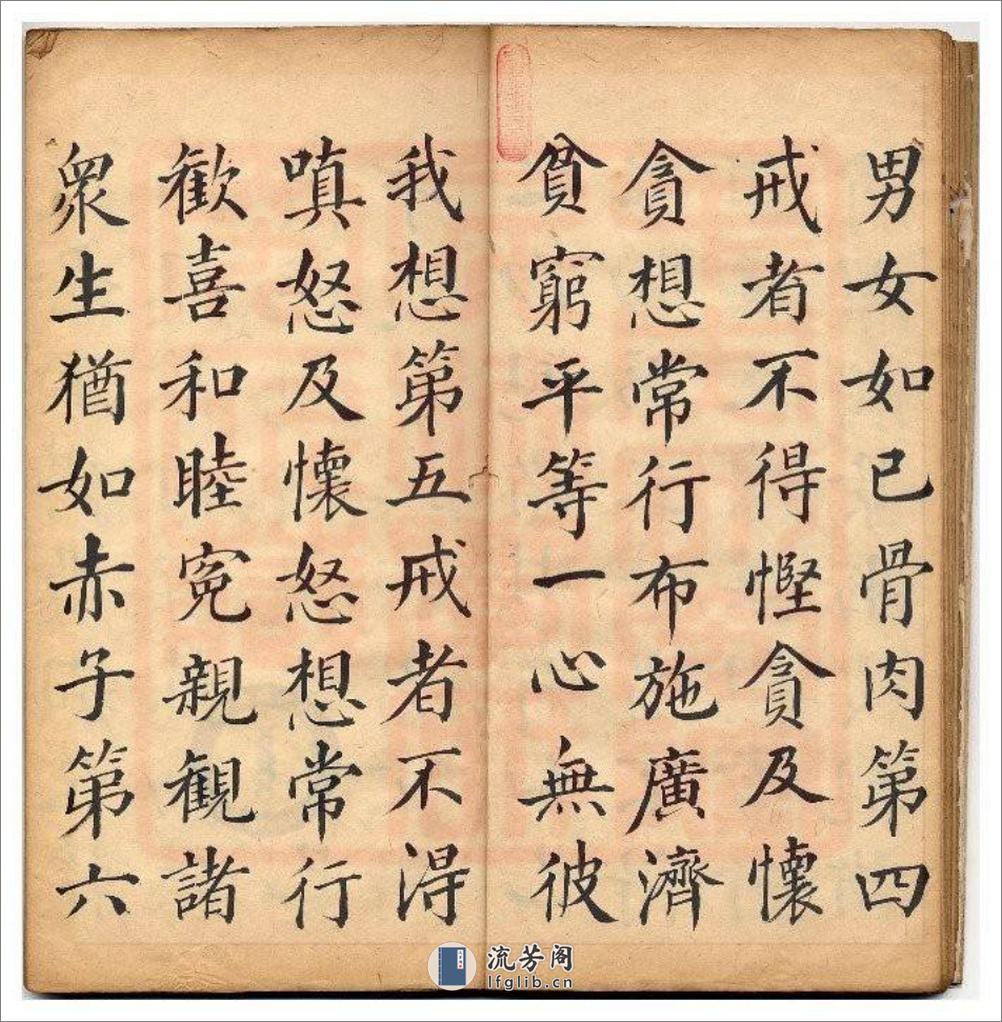 男女如已骨肉第四
戒者不得慳貪及懷
貪想常行布施廣濟
貧窮平等一心無彼
我想第五戒者不得
嗔怒及懷怒想常行
歡喜和睦寃親觀諸
衆生猶如赤子第六
流芳阁
lfglib.cn